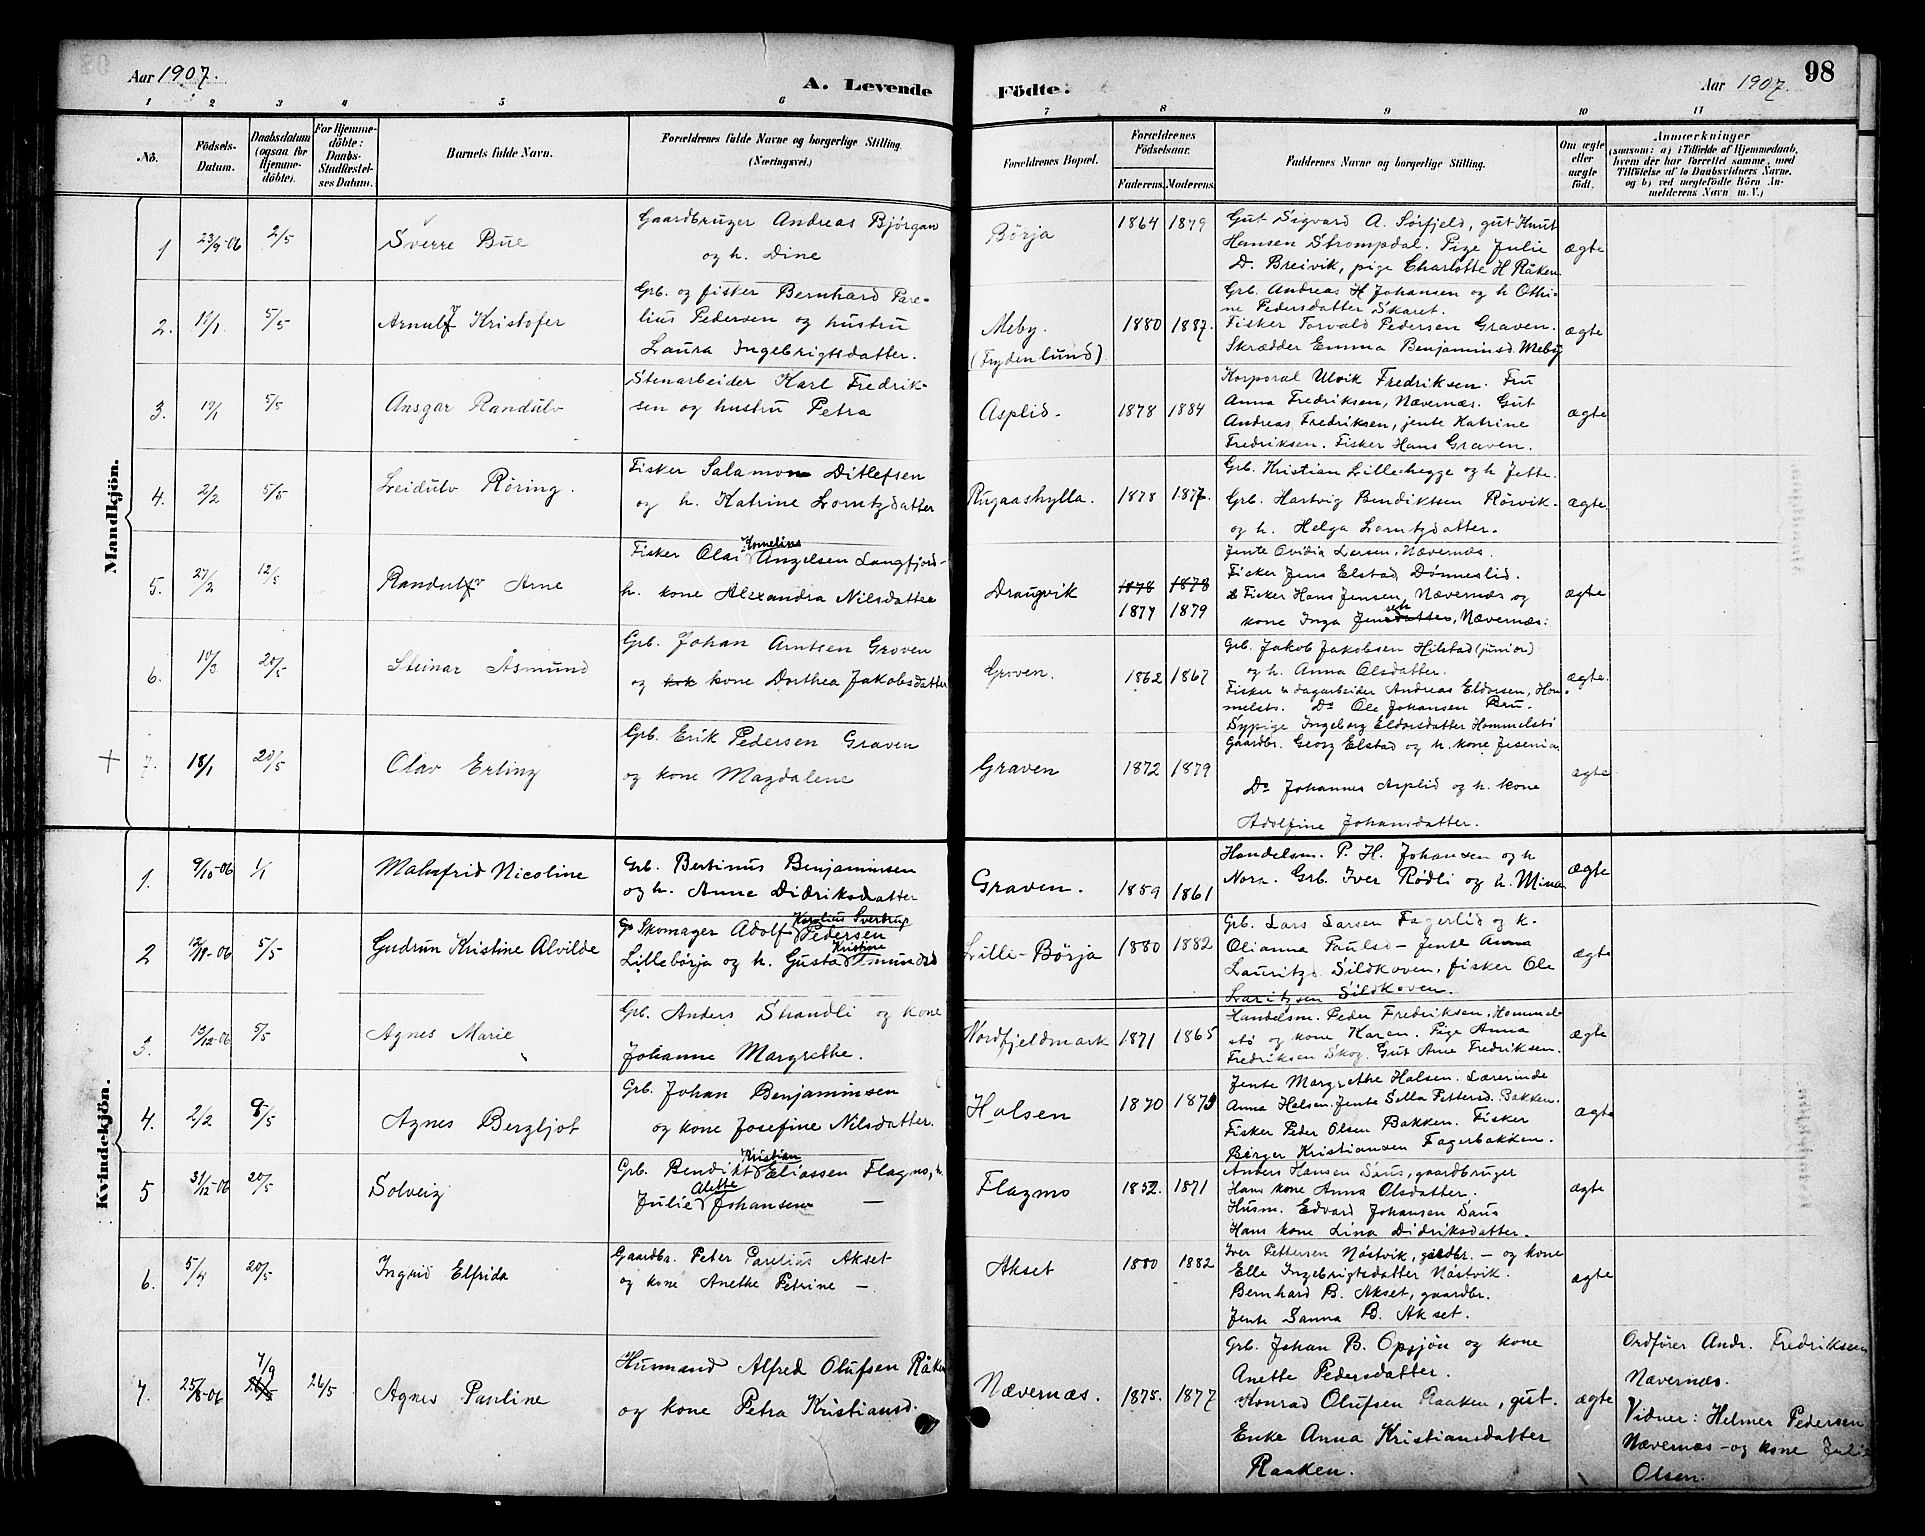 Aar 1907.
A. Levende
Födte:
Aar 1907.
98
1 2 3 4 5 6 7 8 9 10 11
No.
Födsels-Datum.
Daabsdatum (ogsaa for Hjemmedöbte).
For Hjemmedöbte: Daabs-Stadfæstelses Datum.
Barnets fulde Navn.
Forældrenes fulde Navne og borgerlige Stilling. (Næringsvei.)
Forældrenes Bopæl.
Forældrenes Födselsaar.
Faderens. Moderens.
Faddernes Navne og borgerlige Stilling.
Om ægte eller uægte födt.
Anmærkninger (saasom: a) i Tilfælde af Hjemmedaab, hvem der har forrettet samme, med Tilföielse af to Daabsvidners Navne. og b) ved uegtefödte Börn Anmelderens Navn m. V.)
Mandkjön.
1 23/9-06 2/5 Sverre Bue
Gaardbruger Andreas Bjørgan
og h. Dine
Børja 1864 1879
Gut Sigvard A. Sørfjeld, gut Knut
Hansen Strompdal. Pige Julie
D. Breivik, pige Charlotte H Råken
ægte
2. 5/5 Arnulf Kristofer
Grb. og fisker Bernhard Pare-
lius Pedersen og hustru
Laura Ingebrigtsdatter.
Meby.
(Frydenlund)
1880 1887.
Grb. Andreas H Johansen og h Othi-
ne Pedersdatter Skaret.
Fisker Torvald Pedersen Graven.
Skrædder Emma Benjaminsd. Meby
ægte
3. 19/1 5/5 Ansgar Randulv
Stenarbeider Karl Fredrik-
sen og hustru Petra
Asplid- 1878 1884
Korporal Ulvik Fredriksen. Fru
Anna Fredriksen, Nævernæs. Gut
Andreas Fredriksen, jente Katrine
Fredriksen. Fisker Hans Graven.
ægte
4. 2/2 5/5 Leidulv Röring.
Fisker Salamon Ditlefsen
og h. Katrine Lorntzdatter
Rugaashylla. 1878 1877.
Grb. Kristian Lillehegge og h Jette.
Grb. Hartvig Bendiktsen Rörvik-
og h. Helga Lorntzdatter.
ægte
5. 27/2 12/5 Randulv Arne
Fisker Olai Kornelius Angelsen Langfjord-
h. kone Alexandra Nilsdatter
Draugvik 1878 1878
1877 1879
Jente Ovidia Larsen, Nævernæs.
Fisker Jens Elstad, Dönneslid.
Fisker Hans Jensen, Nævernæs og
kone Inga Jensdatter, Nævernæs.
ægte
6. 10/3 20/5 Steinar Åsmund
Grb. Johan Arntsen Groven
og kone Dorthea Jakobsdatter
Groven. 1862 1867
Grb. Jakob Jakobsen Hilstad (junior)
og h. Anna Olsdatter.
Fisker & dagarbeider Andreas Eldorsen, Hom-
melstö. Do Ole Johansen Bru.
Sypige Ingeborg Eldorsdatter Hommelstö
ægte.
+ 7. 18/1 20/5 Olav Erling
Grb. Erik Pedersen Graven
og kone Magdalene
Graven 1872 1879
Gaardbr. Georg Elstad og h. kone Jesenia
Do Johannes Asplid og h. kone
Adolfine Johansdatter.
ægte
Kvindekjön.
1. 9/10-06 1/1 Malmfrid Nicoline
Grb. Bertinus Benjaminsen
og h. Anne Didriksdatter
Graven. 1859 1861
Handelsm. P. H. Johansen og h
Nora. Grb. Iver Rødli og h. Mina
ægte
2 5/5 Gudrun Kristine Alvilde
Skomager Adolf Karelius Sverdrup Pedersen
Lillebørja og h. Gusta Kristine Amundsd
Lille-Børja 1880 1882
Grb. Lars Larsen Fagerlid og k.
Olianna Paulsd- Jente Anna
Lauritzs Sildkoven, fisker Ole
Laritzsen Sildkoven.
ægte
3. 5/5 Agnes Marie
Grb. Anders Strandli og kone
Johanne Margrethe.
Nordfjeldmark 1871 1865
Handelsm. Peder Fredriksen, Hommel-
stö og kone Karen. Pige Anna
Fredriksen Skog. Gut Arne Fredriksen.
ægte
4. 2/2 9/5 Agnes Bergljot
Grb. Johan Benjaminsen
og kone Josefine Nilsdatter.
Halsen 1870
Jente Margrethe Halsen. Lærerinde
Anna Halsen. Jente Sella Pettersd. Bakken.
Fisker Peder Olsen Bakken. Fisker
Börger Kristiansen Fagerbakken.
ægte
5 31/12-06 20/5 Solveig
Grb. Bendikt Kristian Eliassen Flagmo, h.
Julie Alette Johansen —
Flagmo 1852. 1871
Anders Hansen Saus, gaardbruger
Hans kone Anna Olsdatter.
Husm. Edvard Johansen Saus
Hans kone Lina Didriksdatter.
ægte
6. 5/4 20/5 Ingrid Elfrida
Gaardbr. Peter Parelius Akset
og kone Anette Petrine —
Akset 1880 1882
Iver Pettersen Nöstvik, gardbr. — og kone
Elle Ingebrigtsdatter Nöstvik.
Bernhard B. Akset, gaardbr.
Jente Sanna B. Akset.
ægte
7. 25/8-06 7/9 26/5 26/5 Agnes Pauline
Husmand Alfred Olufsen Råken
og kone Petra Kristiansd.
Nævernæs. 1875. 1877
Grb. Johan B. Oppjön og kone
Anette Pedersdatter.
Konrad Olufsen Raaken, gut.
Enke Anna Kristiansdatter
Raaken.
ægte
Ordfører Andr. Fredriksen
Nævernæs.
Vidner: Helmer Pedersen
Nævernæs - og kone Julie
Olsen.